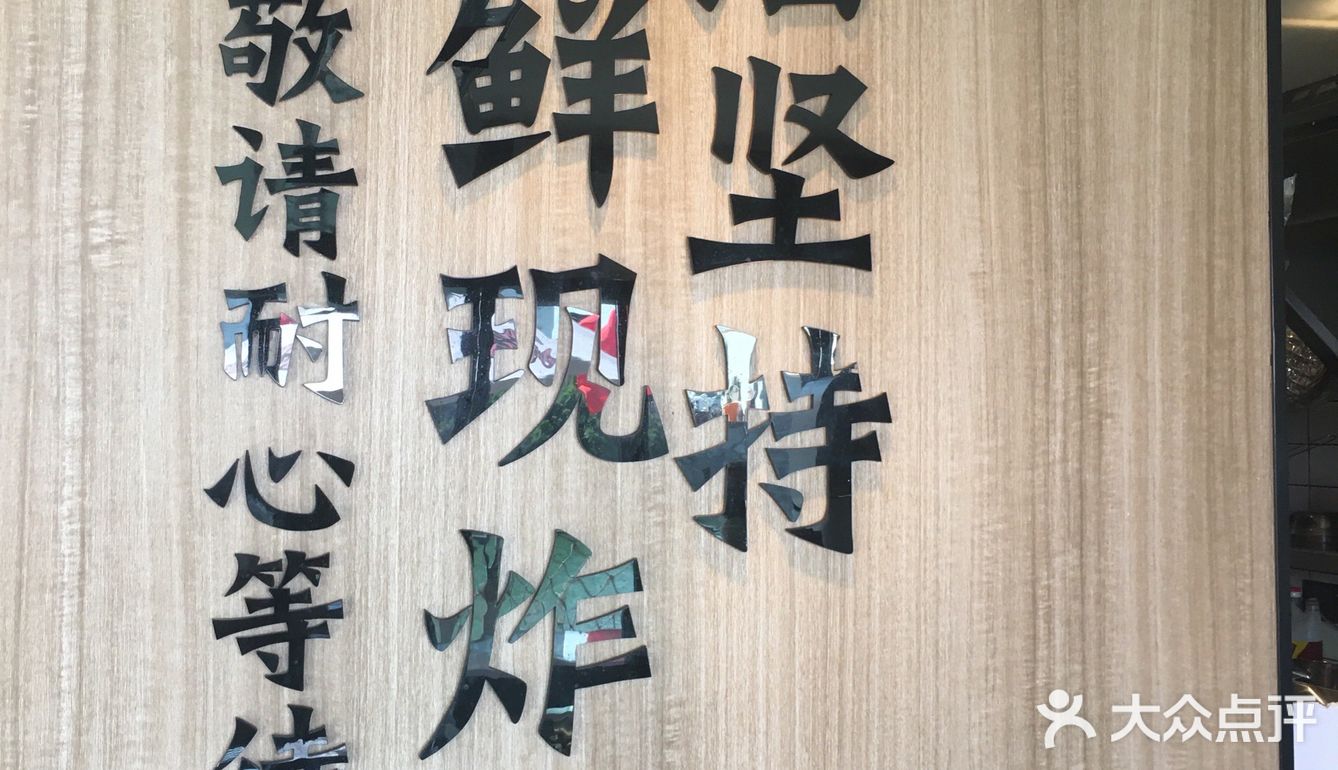 坚持
鲜现炸
敬请耐心等待
大众点评